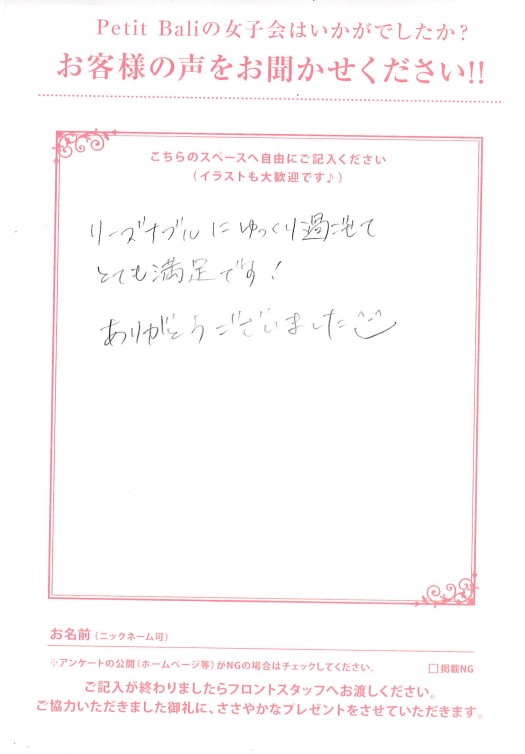 Petit Baliの女子会はいかがでしたか?
お客様の声をお聞かせください!!
こちらのスペースへ自由にご記入ください
(イラストも大歓迎です♪)
リーズナブルにゆっくり過ごせて
とても満足です!
ありがとうございました
お名前(ニックネーム可)
※アンケートの公開(ホームページ等)がNGの場合はチェックしてください。 □掲載NG
ご記入が終わりましたらフロントスタッフへお渡しください。
ご協力いただきました御礼に、ささやかなプレゼントをさせていただきます。